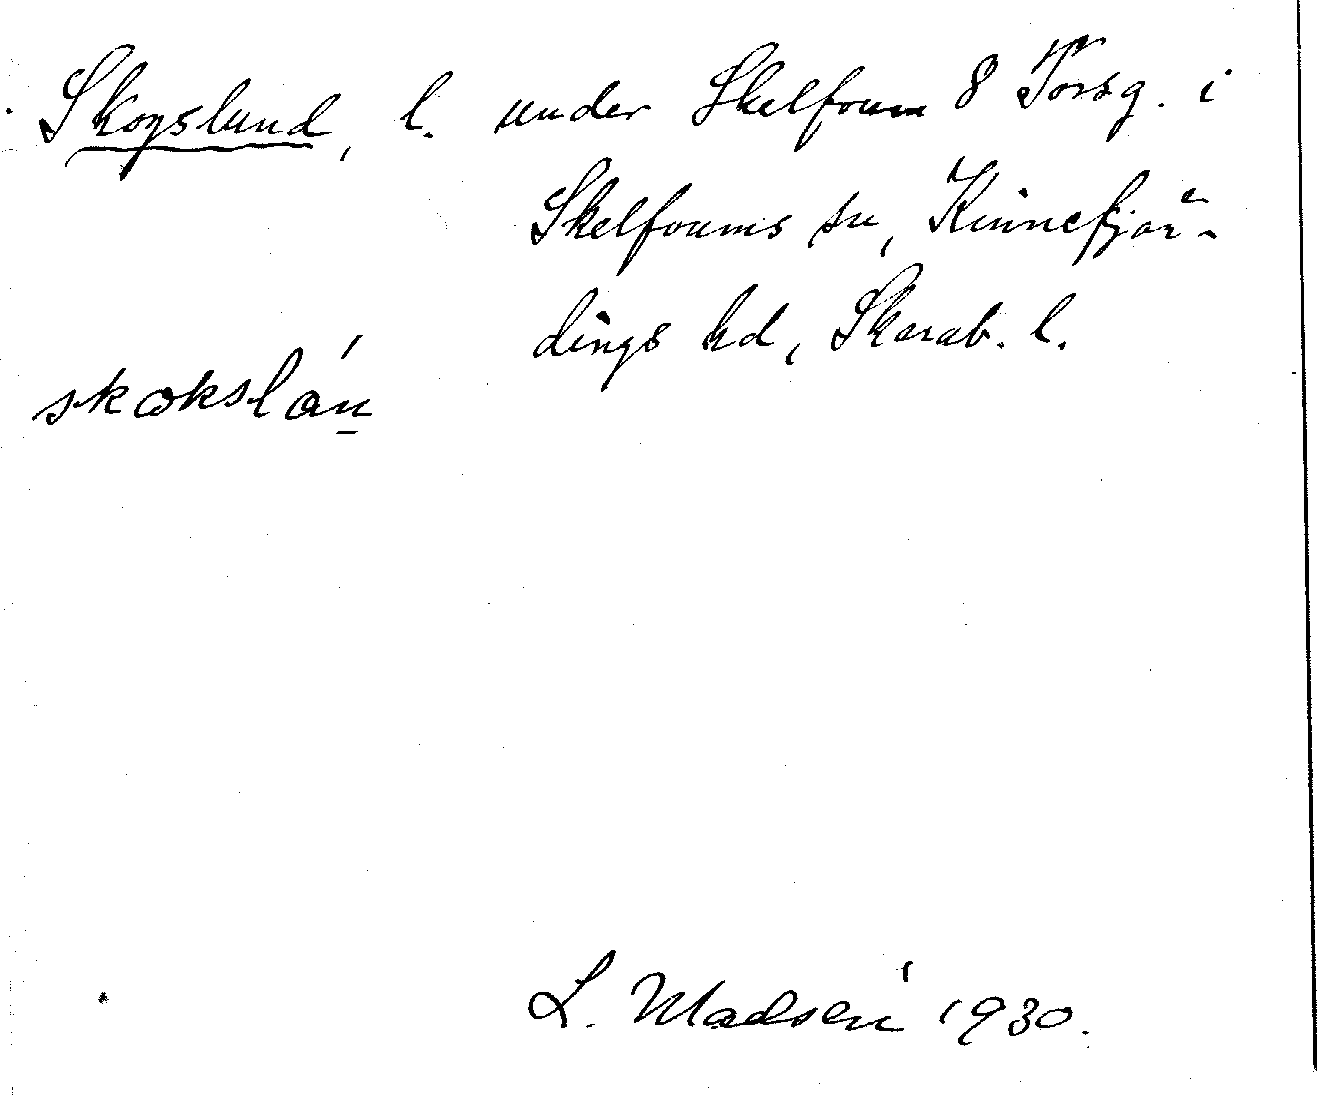 Skogslund, l. under Skelfoum 8 Torsg. i
Skelfoums sn, Kinnefjär-
dings hd, Skarab. l.
skokslán
L. Madsén 1930.